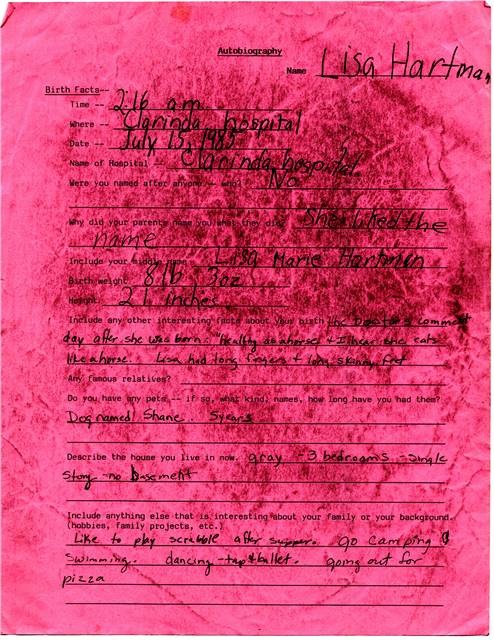 Autobiography
Name Lisa Hartman
Birth Facts--
Time -- 2:16 a.m.
Where -- Clarinda hospital
Date -- July 15, 1985
Name of Hospital -- Clarinda hospital
Were you named after anyone -- who? No
Why did your parents name you what they did? She liked the
name
Include your middle name Lisa Marie Hartman
Birth weight 8 lb 3oz
Height 21 inches
Include any other interesting facts about your birth the Doctors comment
day after she was born: "healthy as a horse + I hear she eats
like a horse. Lisa had long fingers + long skinny feet
Any famous relatives?
Do you have any pets -- if so, what kind, names, how long have you had them?
Dog named Shane. 5 years
Describe the house you live in now. gray - 3 bedrooms - single
story - no basement
Include anything else that is interesting about your family or your background.
(hobbies, family projects, etc.)
Like to play scrabble after supper. go camping &
swimming. dancing - tap & ballet. going out for
pizza